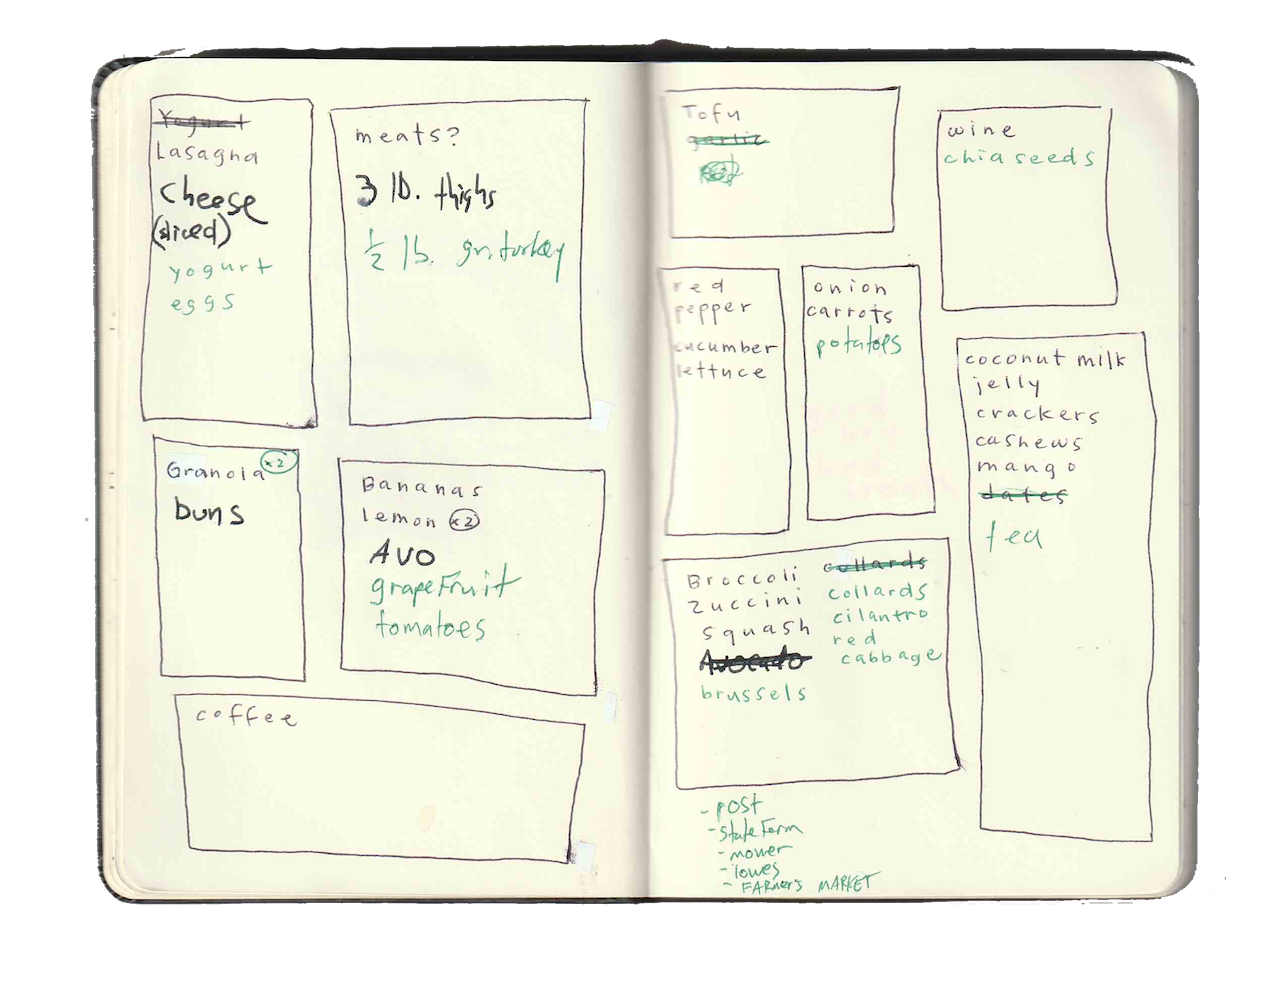 Yogurt
Lasagna
cheese
(sliced)
yogurt
eggs
meats?
3 lb. thighs
½ lb. gr. turkey
Granola x2
buns
Bananas
lemon x2
AVO
grapeFruit
tomatoes
coffee
Tofu
garlic
red
pepper
cucumber
lettuce
onion
carrots
potatoes
wine
chia seeds
coconut milk
jelly
crackers
cashews
mango
dates
tea
Broccoli
Zuccini
squash
Avocado
brussels
collards
collards
cilantro
red
cabbage
- post
- State Farm
- mower
- lowes
- FARmers MARKET